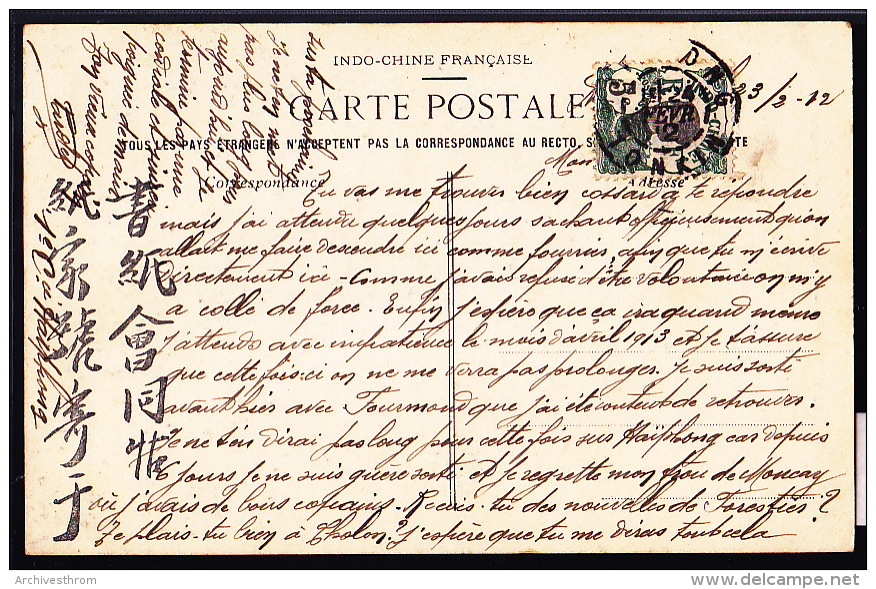 INDO-CHINE FRANÇAISE
CARTE POSTALE
TOUS LES PAYS ÉTRANGERS N'ACCEPTENT PAS LA CORRESPONDANCE AU RECTO. S
Correspondance
Adresse
23/2-12
Mon
Tu vas me trouver bien cossard à te répondre
mais j'ai attendu quelques jours sachant officieusement qu'on
allait me faire descendre ici comme fourrier, afin que tu m'écrive
directement ici - Comme j'avais refusé d'être volontaire on m'y
a collé de force. Enfin j'espère que ça ira quand même
J'attends avec impatience le mois d'avril 1913 et je t'assure
que cette fois-ci on ne me verra pas prolonger. Je suis sorti
avant hier avec Tourmond que j'ai été content de retrouver.
Je ne t'en dirai pas long pour cette fois sur Haïphong car depuis
6 jours je ne suis guère sorti et je regrette mon de Moncay
où j'avais de bons copains - Reçois-tu des nouvelles de Forestier?
Te plais-tu bien à Cholon? J'espère que tu me diras tout cela
sur ta prochaine
pas plus long pour
aujourd'hui et je
termine par une
cordiale et
poignée de main
Ton vieux copain
Haïphong
書紙會同
家號寄于
Archivesthrom
delcampe.net